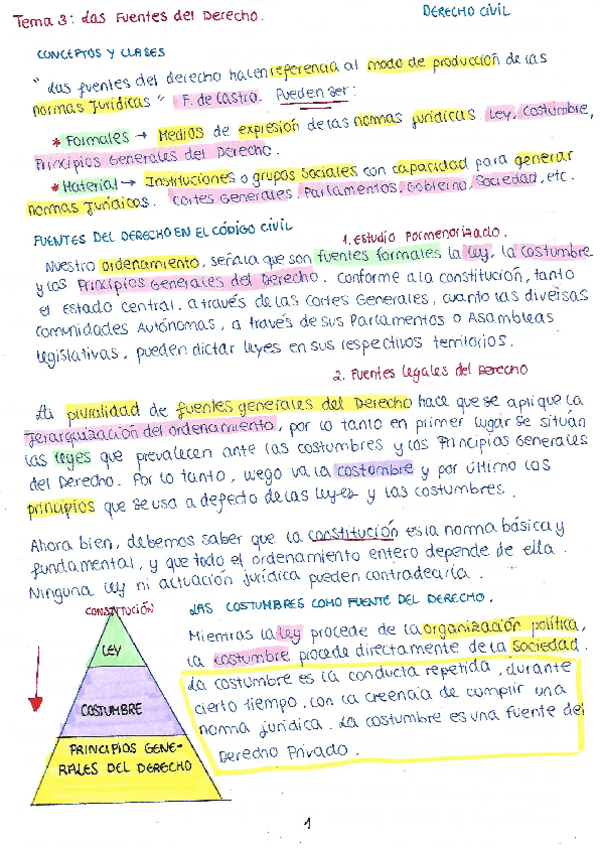 Tema 3: Las Fuentes del Derecho.
DERECHO CIVIL
CONCEPTOS Y CLASES
"Las fuentes del derecho hacen referencia al modo de producción de las
normas Jurídicas" F. de Castro. Pueden ser:
* Formales → Medios de expresión de las normas jurídicas Ley, Costumbre,
Principios Generales del Derecho.
* Material → Instituciones o grupos sociales con capacidad para generar
normas Jurídicos. Cortes Generales, Parlamentos, Gobierno, Sociedad, etc.
FUENTES DEL DERECHO EN EL CÓDIGO CIVIL
1. Estudio Pormenorizado.
Nuestro ordenamiento, señala que son fuentes formales la ley, la costumbre
y los Principios Generales del Derecho. Conforme a la constitución, tanto
el Estado central, a través de las Cortes Generales, cuanto las diversas
comunidades Autónomas, a través de sus Parlamentos o Asambleas
legislativas, pueden dictar leyes en sus respectivos territorios.
2. Fuentes legales del Derecho
La pluralidad de fuentes generales del Derecho hace que se aplique la
Jerarquización del ordenamiento, por lo tanto en primer lugar se sitúan
las leyes que prevalecen ante las costumbres y los Principios Generales
del Derecho. Por lo tanto, luego va la costumbre y por último los
principios que se usa a defecto de las leyes y las costumbres.
Ahora bien, debemos saber que la constitución es la norma básica y
fundamental, y que todo el ordenamiento entero depende de ella.
Ninguna ley ni actuación jurídica pueden contradecirla.
CONSTITUCIÓN
LEY
COSTUMBRE
PRINCIPIOS GENE-
RALES DEL DERECHO
LAS COSTUMBRES COMO FUENTE DEL DERECHO.
Mientras la ley procede de la organización política,
la costumbre procede directamente de la Sociedad.
La costumbre es la conducta repetida, durante
cierto tiempo, con la creencia de cumplir una
norma jurídica. La costumbre es una fuente del
Derecho Privado.
1